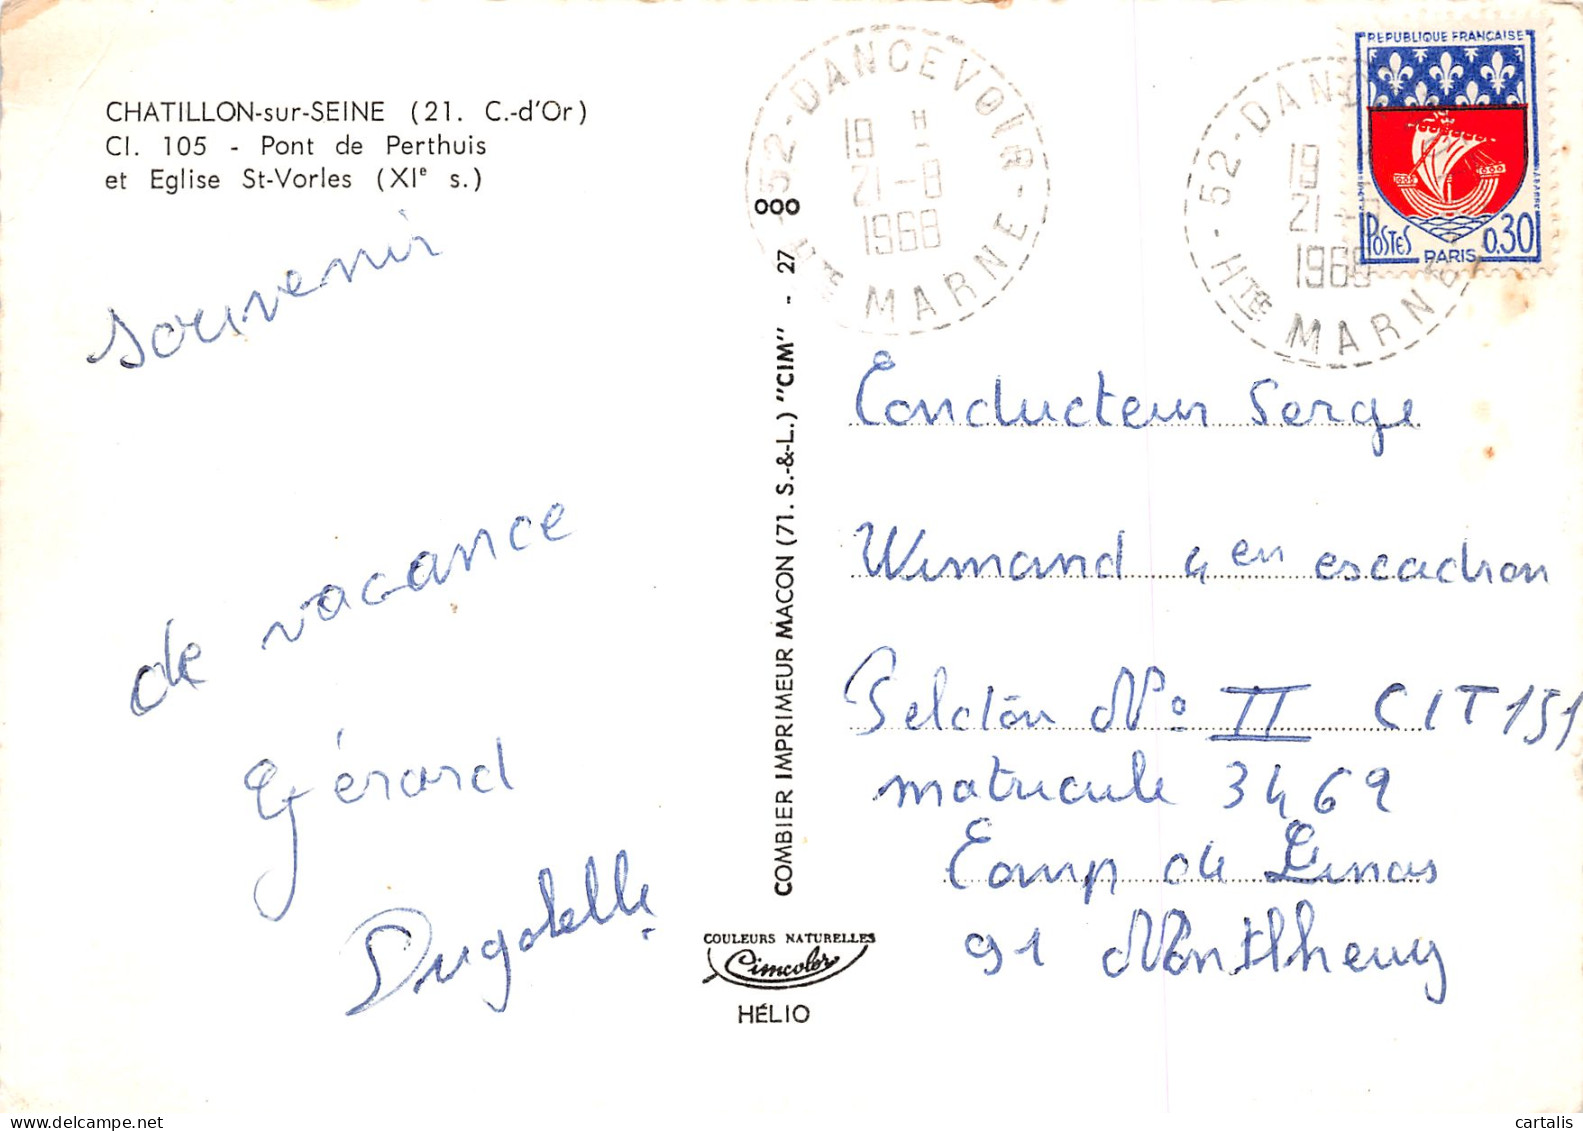 CHATILLON-sur-SEINE (21. C.-d'Or)
CI. 105 - Pont de Perthuis
et Eglise St-Vorles (XIe s.)
souvenir
de vacance
Gérard
COMBIER IMPRIMEUR MACON (71. S.-&-L.) "CIM" - 27
000
COULEURS NATURELLES
Cimcolor
HÉLIO
52-DANCEVOIR
19 H
21-8
1968
Hte MARNE
52-DANC
19
21-8
1968
Hte MARNE
REPUBLIQUE FRANÇAISE
POSTES
PARIS
0,30
Conducteur Serge
4 en escadron
No II CIT 151
matricule 3469
Camp de Linas
91 Montlhery
cartalis